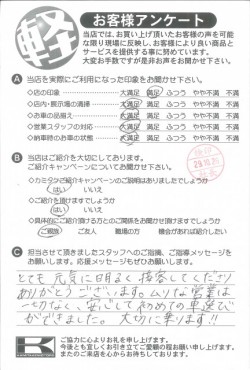 軽
お客様アンケート
当店では、お買い上げ頂いたお客様の声を可能
な限り現場に反映し、お客様により良い商品と
サービスを提供する事に努めています。
大変お手数ですが是非お声をお聞かせ下さい。
A 当店を実際にご利用になった印象をお聞かせ下さい。
◇店の印象 大満足 満足 ふつう やや不満 不満
◇店内・展示場の清掃 大満足 満足 ふつう やや不満 不満
◇お車の品揃え 大満足 満足 ふつう やや不満 不満
◇営業スタッフの対応 大満足 満足 ふつう やや不満 不満
◇納車時のお車の状態 大満足 満足 ふつう やや不満 不満
B 当店はご紹介を大切にしてあります。
ご紹介キャンペーンについてお聞かせ下さい。
◇カミタケご紹介キャンペーンのご説明はありましたでしょうか
はい いいえ
◇ご紹介を頂けますでしょうか
はい いいえ
◇具体的にご紹介頂ける方とのご関係をお聞かせ頂けますでしょうか
ご親族 ご友人 職場の方 機会があれば紹介したい
C 担当させて頂きましたスタッフへのご指摘、ご指導メッセージを
お願いします。応援メッセージもぜひお願いします。
とても元気に明るく接客してくださり
ありがとうございます。ムリな営業は
一切なく、安心してはじめての車選び
ができました。大切に乗ります!!
ご協力に心よりお礼を申し上げます。
今後とも宜しくお引き立てご愛顧の程お願い申し上げます。
またのご来店を心からお待ちしております。